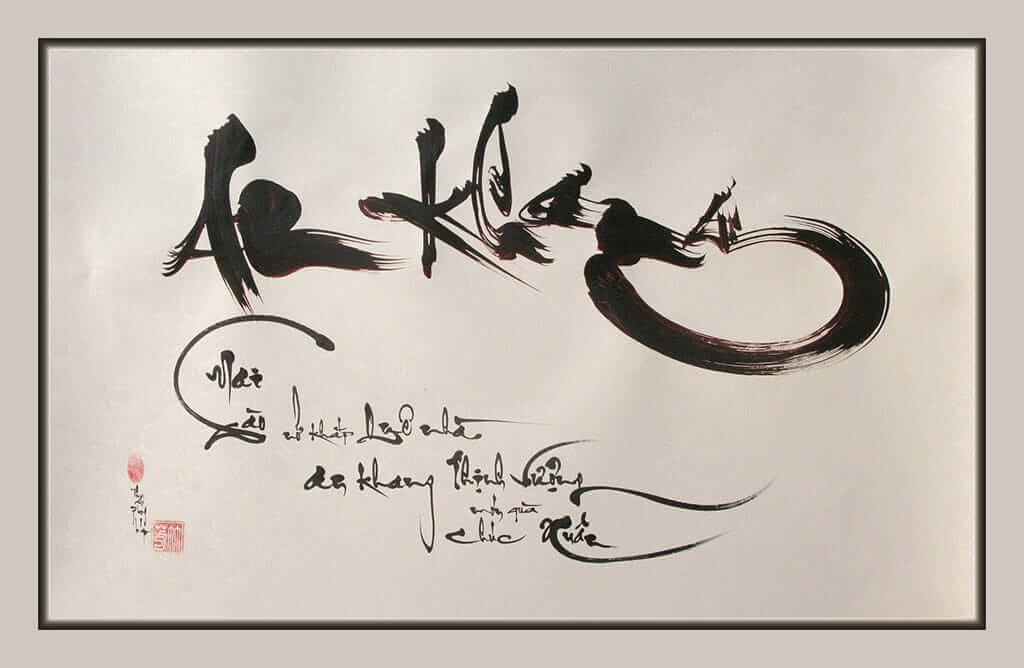 An Khang
Mai
đào nở khắp mọi nhà
an khang thịnh vượng
món quà
chúc Xuân